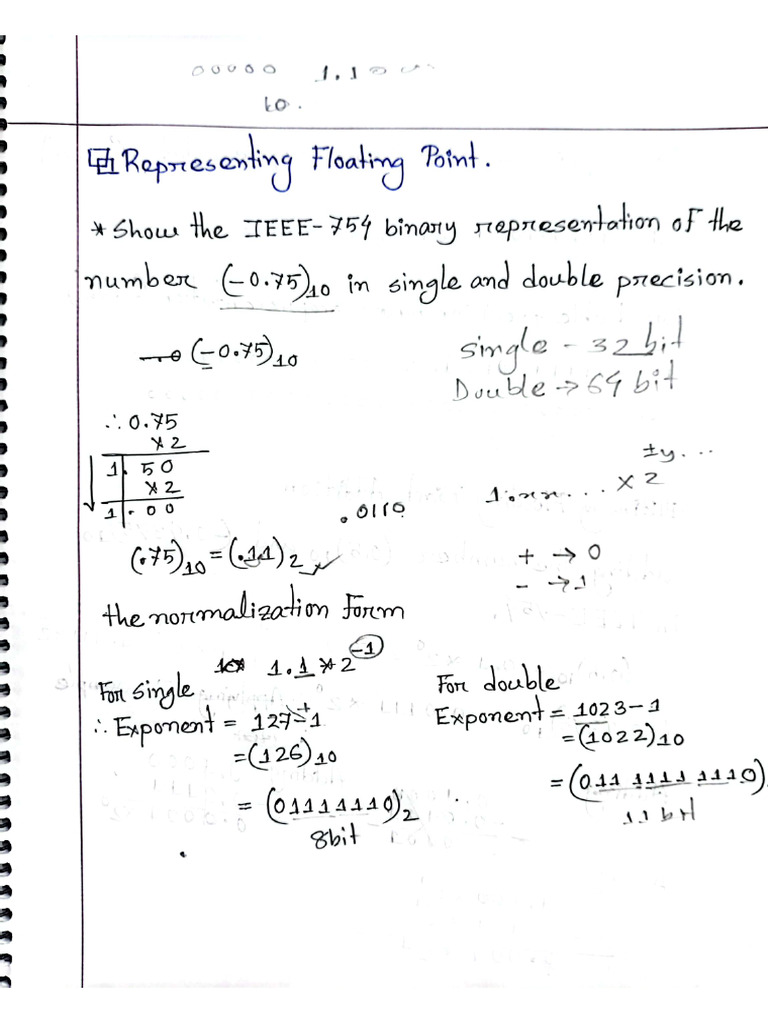 00000 1.1
10.
Representing Floating Point.
* Show the IEEE-754 binary representation of the
number (-0.75)10 in single and double precision.
(-0.75)10
single - 32 bit
Double → 64 bit
∴ 0.75
×2
1 . 50
×2
1 . 00
.0110
±y...
1.xx... × 2
(.75)10 = (.11)2
+ → 0
- → 1
the normalization form
1.1 * 2^-1
For single
∴ Exponent = 127-1
= (126)10
= (01111110)2
8bit
For double
Exponent = 1023-1
= (1022)10
= (011 1111 1110)
11 bit